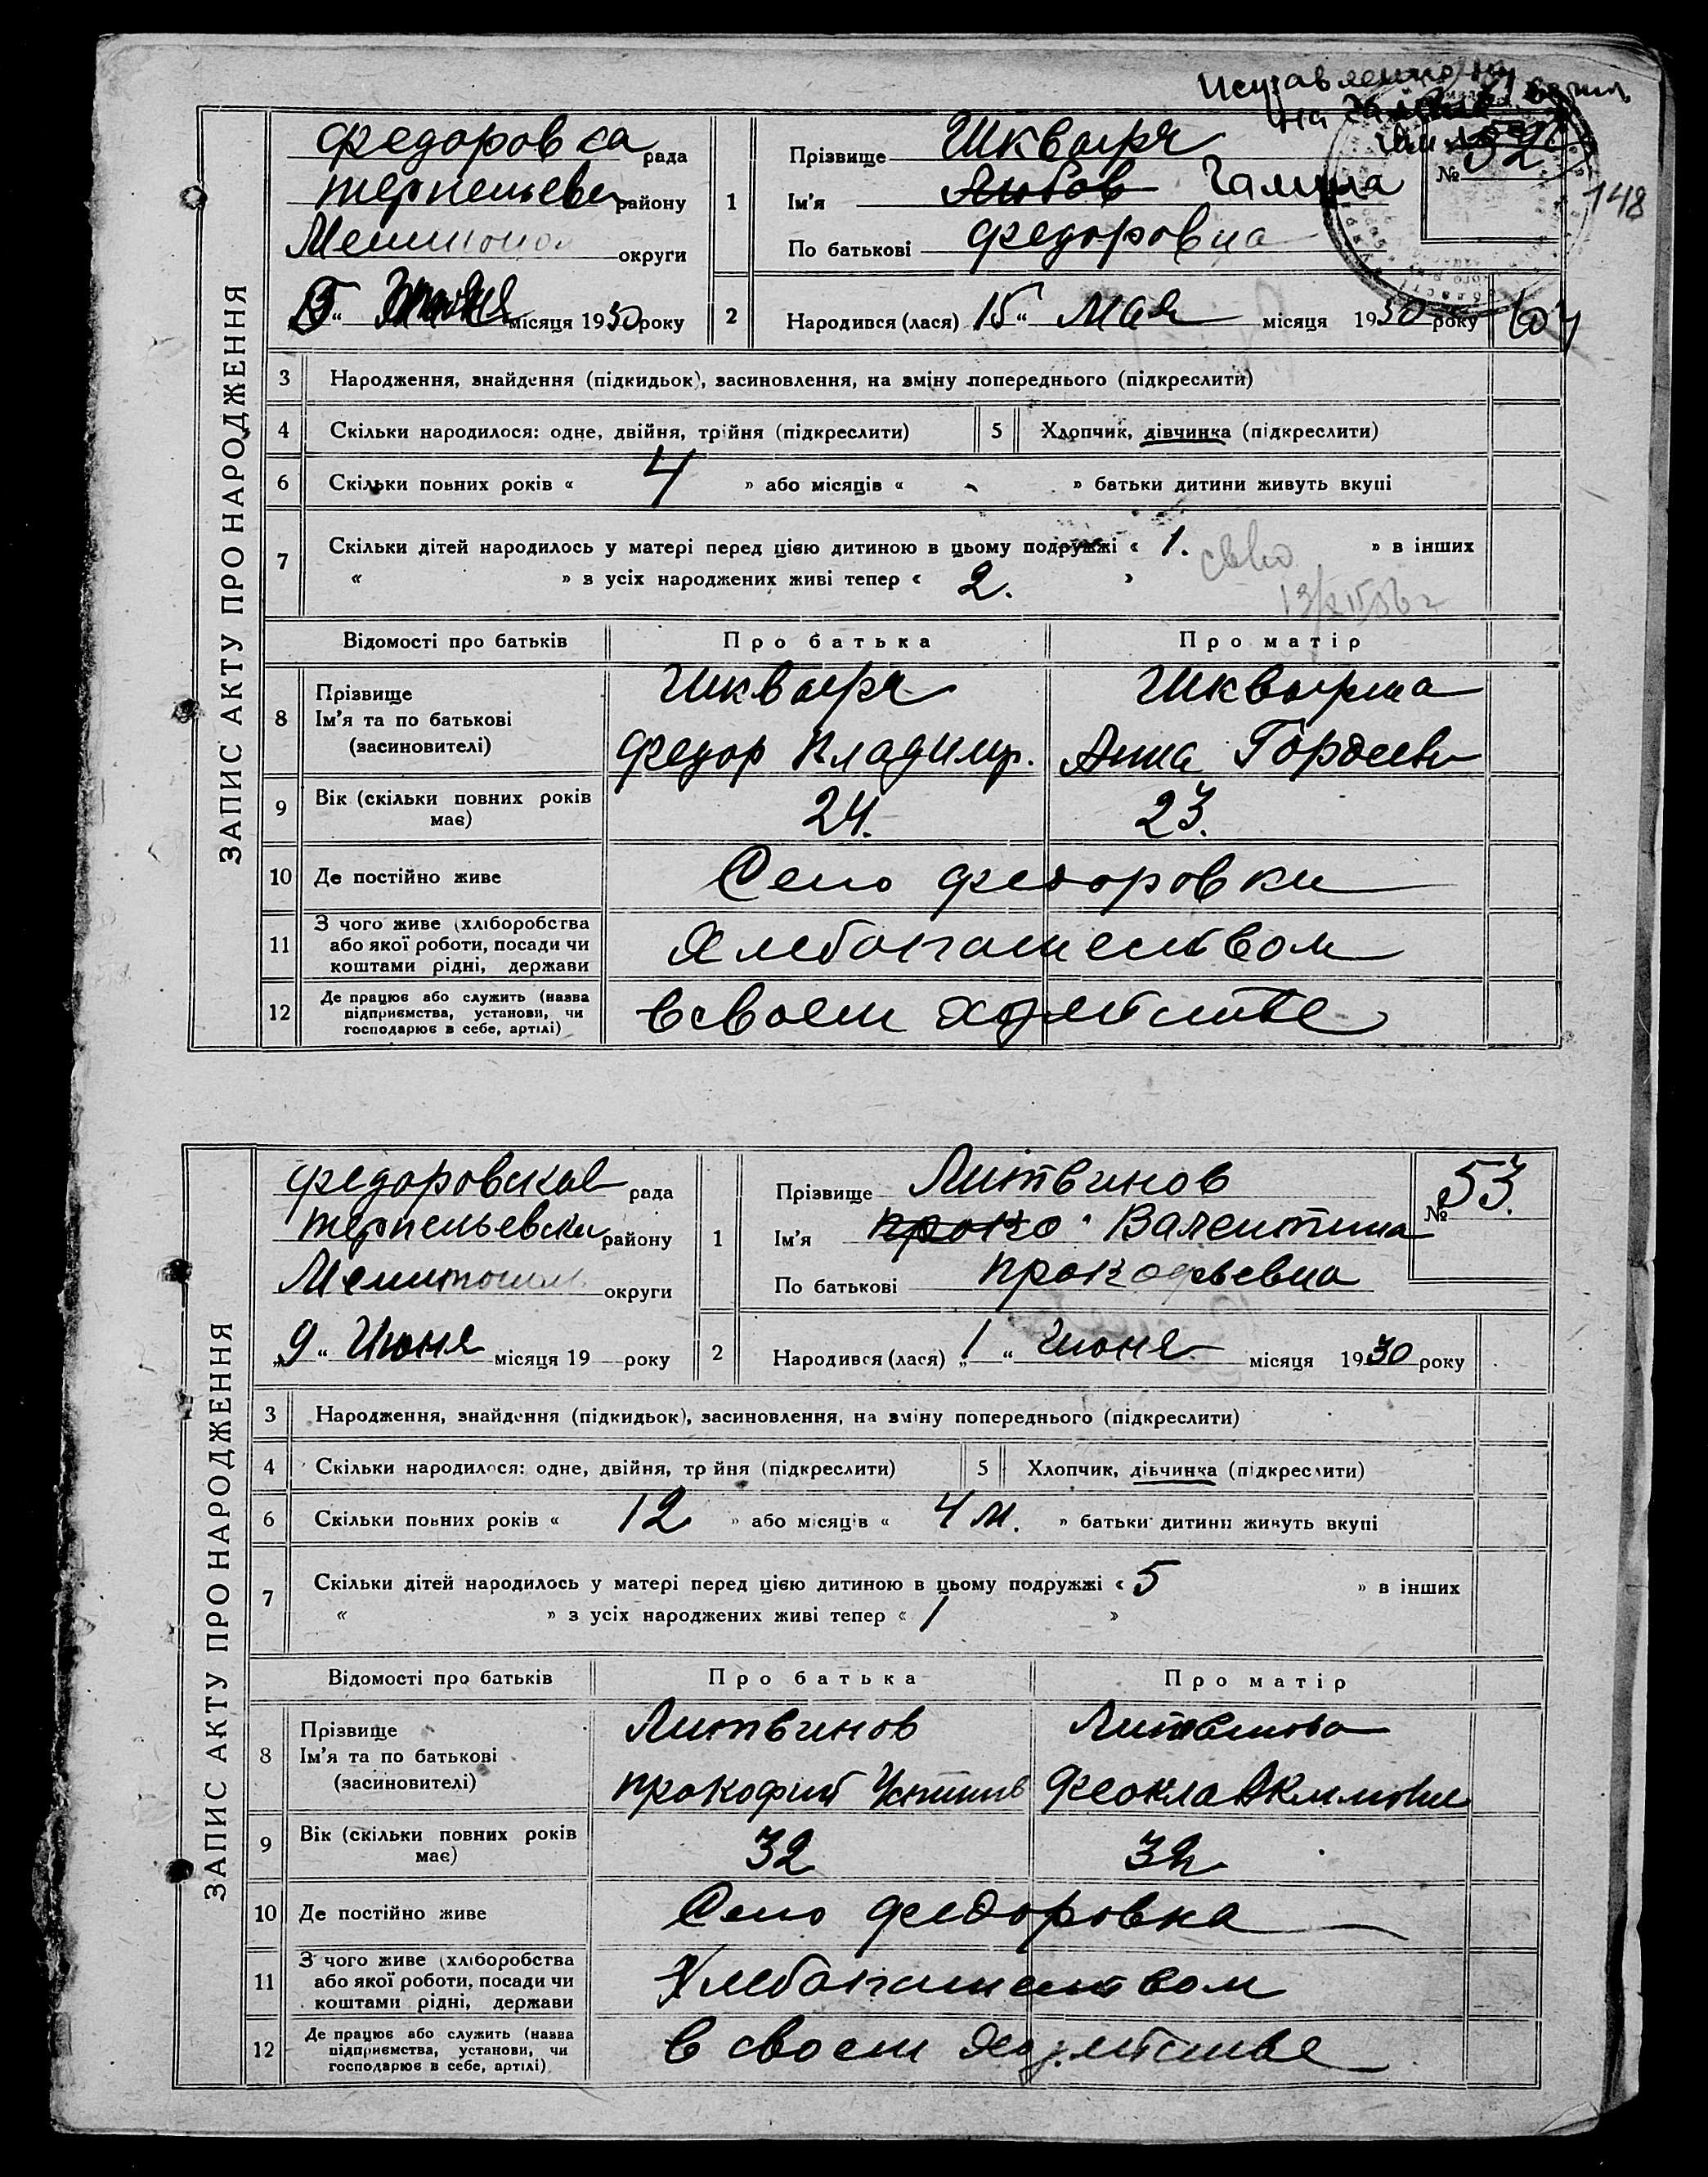 Исправленному
на
Федоровка рада
район­у
Мелитопол округи
5 " місяця 1930 року
1
Прізвище Шквыря
Ім'я Любов Галина
По батькові Федоровна
№ 52
148
2
Народився (лася) 15 " мая місяця 1930 року
ЗАПИС АКТУ ПРО НАРОДЖЕННЯ
3 Народження, знайдення (підкидьок), засиновлення, на зміну попереднього (підкреслити)
4 Скільки народилося: одне, двійня, трійня (підкреслити)
5 Хлопчик, дівчинка (підкреслити)
6 Скільки повних років « 4 » або місяців « - » батьки дитини живуть вкупі
7 Скільки дітей народилось у матері перед цією дитиною в цьому подружжі « 1. » в інших
« » з усіх народжених живі тепер « 2. »
Відомості про батьків Про батька Про матір
8 Прізвище Шквыря
Ім'я та по батькові
(засиновителі) Федор Владимир. Анна Гордеевн
9 Вік (скільки повних років
має) 24. 23.
10 Де постійно живе Село Федоровки
11 З чого живе (хліборобства
або якої роботи, посади чи
коштами рідні, держави Хлебопашеством
12 Де працює або служить (назва
підприємства, установи, чи
господарює в себе, артілі) в своем хозяйстве
Федоровской рада
району
Мелитопол. округи
„9 " Июня місяця 19 року
1
Прізвище Литвинов
Ім'я Валентина
По батькові Прокофьевна
№ 53.
2
Народився (лася) „1 " Июня місяця 1930 року
ЗАПИС АКТУ ПРО НАРОДЖЕННЯ
3 Народження, знайдення (підкидьок), засиновлення, на зміну попереднього (підкреслити)
4 Скільки народилося: одне, двійня, трійня (підкреслити)
5 Хлопчик, дівчинка (підкреслити)
6 Скільки повних років « 12 » або місяців « 4 м. » батьки дитини живуть вкупі
7 Скільки дітей народилось у матері перед цією дитиною в цьому подружжі « 5 » в інших
« » з усіх народжених живі тепер « 1 »
Відомості про батьків Про батька Про матір
8 Прізвище Литвинов Литвинова
Ім'я та по батькові
(засиновителі) Прокофий Фекла Акимовн
9 Вік (скільки повних років
має) 32
10 Де постійно живе Село Федоровка
11 З чого живе (хліборобства
або якої роботи, посади чи
коштами рідні, держави Хлебопашеством
12 Де працює або служить (назва
підприємства, установи, чи
господарює в себе, артілі) в своем хозяйстве